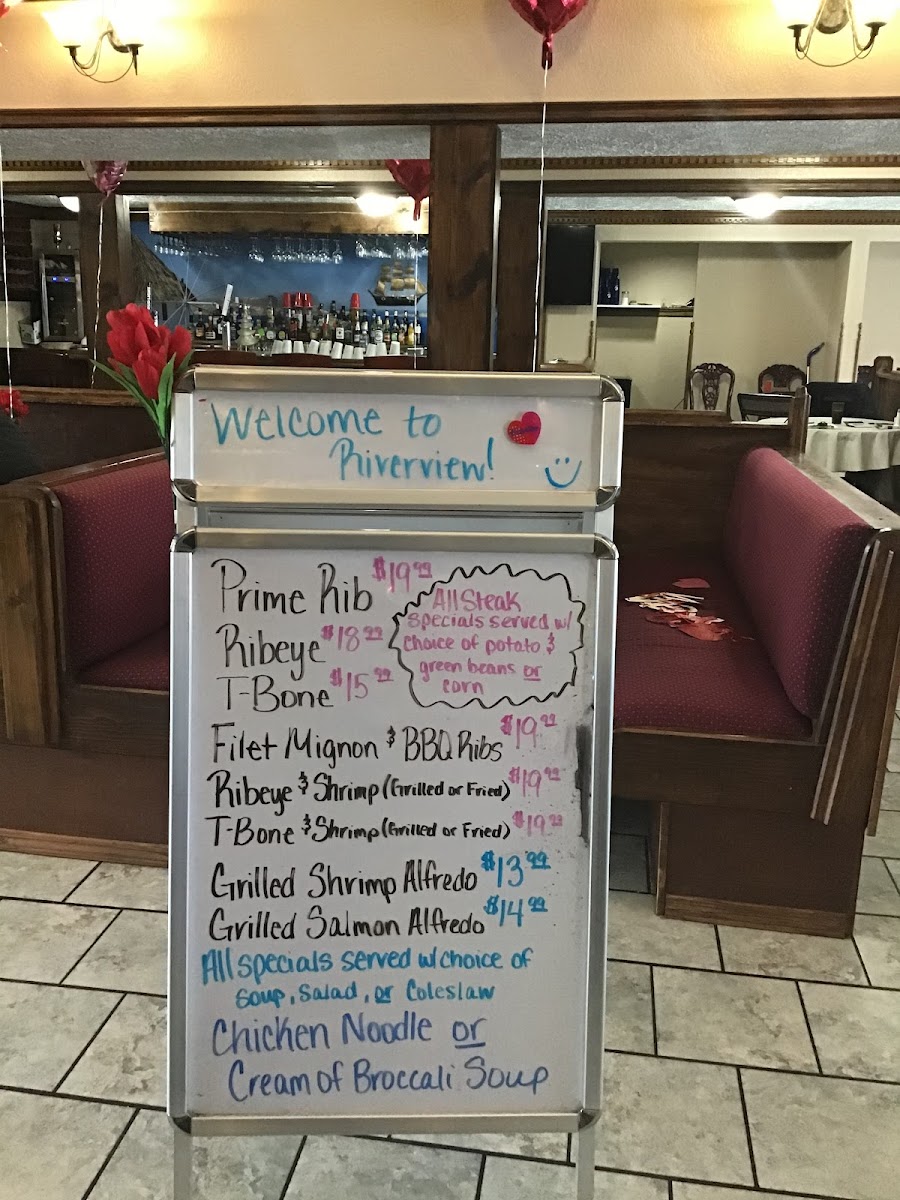 Welcome to
Riverview!
Prime Rib $19.99
Ribeye $18.99
T-Bone $15.99
All Steak
specials served w/
choice of potato &
green beans or
corn
Filet Mignon & BBQ Ribs $19.99
Ribeye & Shrimp (Grilled or Fried) $19.99
T-Bone & Shrimp (Grilled or Fried) $19.99
Grilled Shrimp Alfredo $13.99
Grilled Salmon Alfredo $14.99
All specials served w/ choice of
Soup, Salad, or Coleslaw
Chicken Noodle or
Cream of Broccali Soup